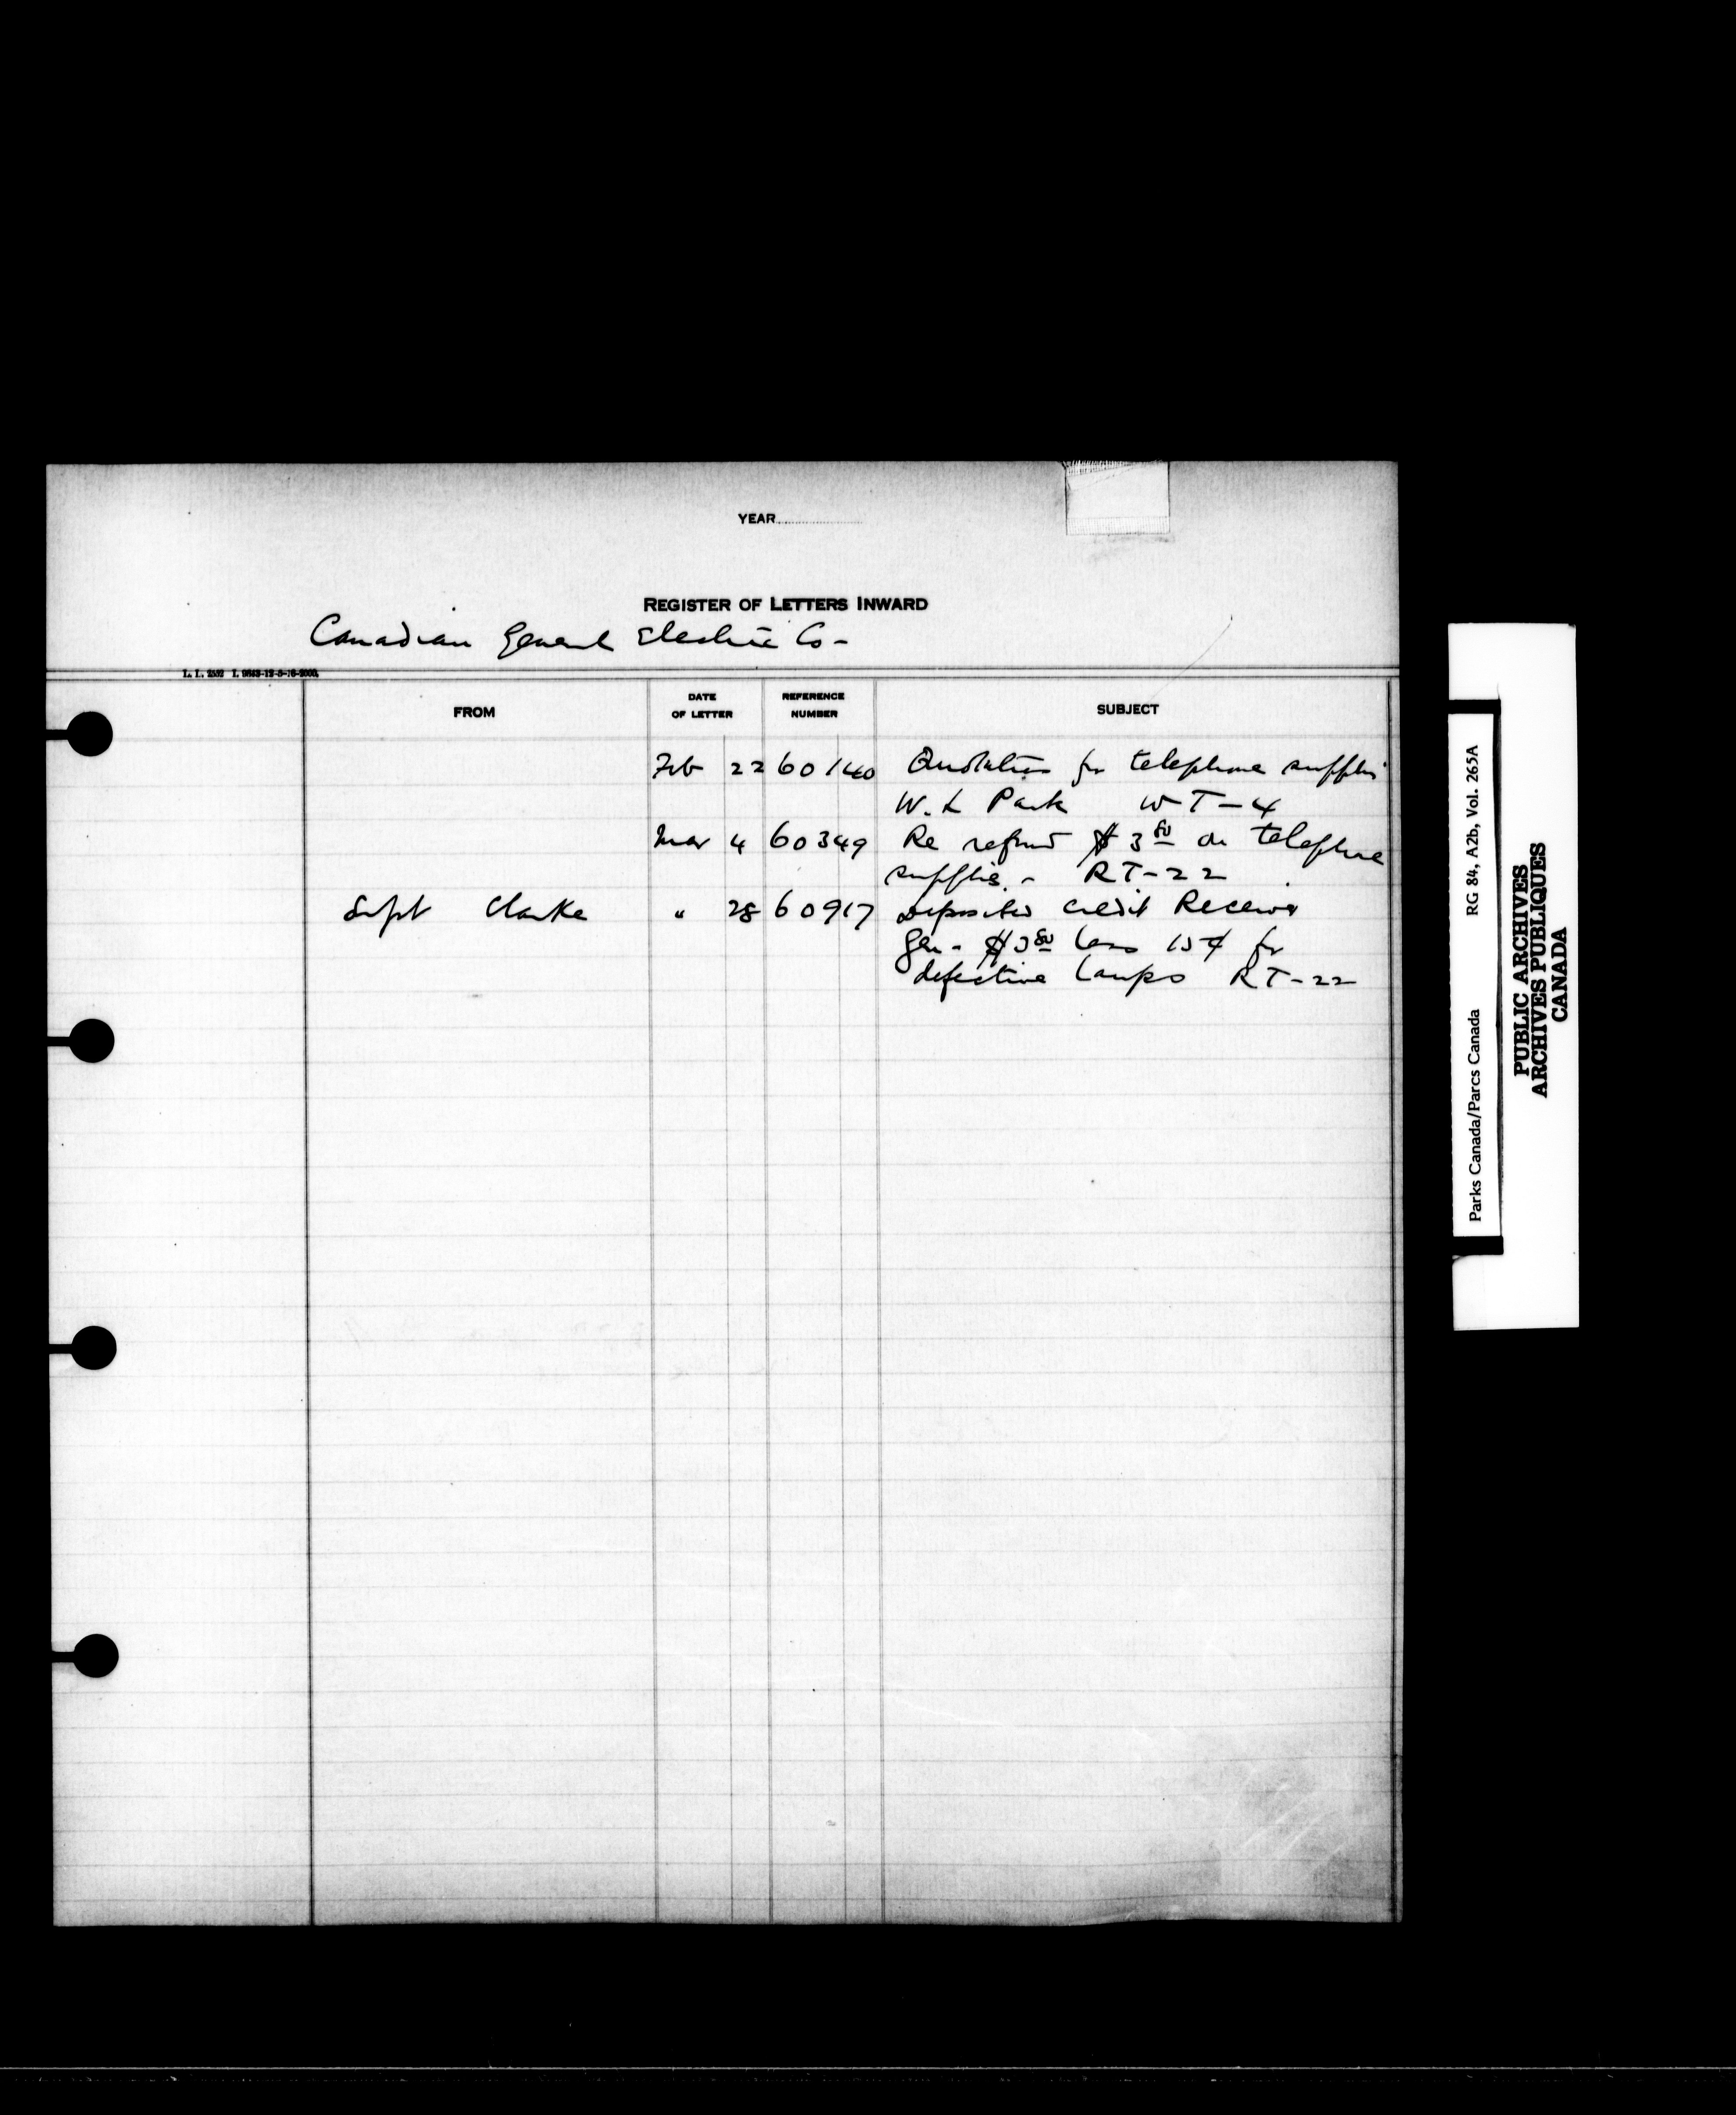 YEAR
REGISTER OF LETTERS INWARD
Canadian General Electric Co-
L. L. 2552 I. 9843-12-5-16-2000.
FROM DATE OF LETTER REFERENCE NUMBER SUBJECT
Feb 22 60140 Quotation for telephone supplies
W. L Park WT-4
Mar 4 60349 Re refund $3 80 on telephone
supplies.- RT-22
Supt Clarke " 28 60917 Deposited credit Receiver
Gen- $3 80 less 15¢ for
defective lamps RT-22
Parks Canada/Parcs Canada RG 84, A2b, Vol. 265A
PUBLIC ARCHIVES
ARCHIVES PUBLIQUES
CANADA